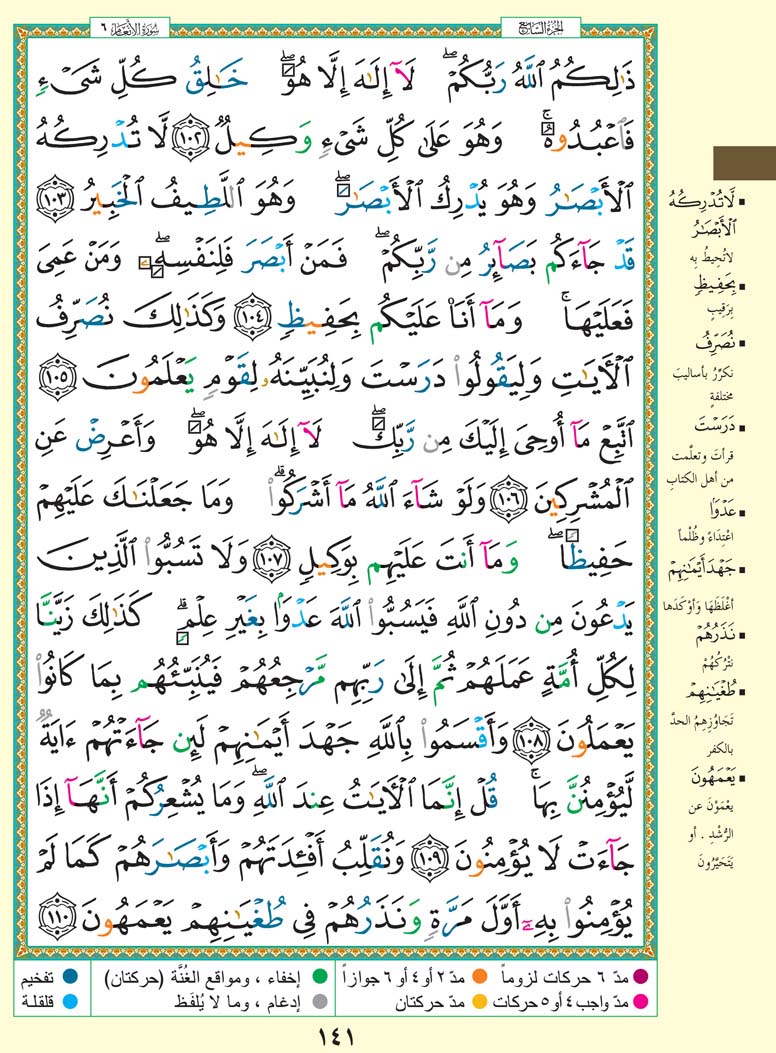 الجزء السابع
سورة الأنعام ٦
ذَٰلِكُمُ ٱللَّهُ رَبُّكُمْ ۖ لَآ إِلَٰهَ إِلَّا هُوَ ۖ خَٰلِقُ كُلِّ شَىْءٍ
فَٱعْبُدُوهُ ۚ وَهُوَ عَلَىٰ كُلِّ شَىْءٍ وَكِيلٌ ١٠٢ لَّا تُدْرِكُهُ
ٱلْأَبْصَٰرُ وَهُوَ يُدْرِكُ ٱلْأَبْصَٰرَ ۖ وَهُوَ ٱللَّطِيفُ ٱلْخَبِيرُ ١٠٣
قَدْ جَآءَكُم بَصَآئِرُ مِن رَّبِّكُمْ ۖ فَمَنْ أَبْصَرَ فَلِنَفْسِهِۦ ۖ وَمَنْ عَمِىَ
فَعَلَيْهَا ۚ وَمَآ أَنَا۠ عَلَيْكُم بِحَفِيظٍ ١٠٤ وَكَذَٰلِكَ نُصَرِّفُ
ٱلْـَٔايَٰتِ وَلِيَقُولُوا۟ دَرَسْتَ وَلِنُبَيِّنَهُۥ لِقَوْمٍ يَعْلَمُونَ ١٠٥
ٱتَّبِعْ مَآ أُوحِىَ إِلَيْكَ مِن رَّبِّكَ ۖ لَآ إِلَٰهَ إِلَّا هُوَ ۖ وَأَعْرِضْ عَنِ
ٱلْمُشْرِكِينَ ١٠٦ وَلَوْ شَآءَ ٱللَّهُ مَآ أَشْرَكُوا۟ ۗ وَمَا جَعَلْنَٰكَ عَلَيْهِمْ
حَفِيظًا ۖ وَمَآ أَنتَ عَلَيْهِم بِوَكِيلٍ ١٠٧ وَلَا تَسُبُّوا۟ ٱلَّذِينَ
يَدْعُونَ مِن دُونِ ٱللَّهِ فَيَسُبُّوا۟ ٱللَّهَ عَدْوًۢا بِغَيْرِ عِلْمٍ ۗ كَذَٰلِكَ زَيَّنَّا
لِكُلِّ أُمَّةٍ عَمَلَهُمْ ثُمَّ إِلَىٰ رَبِّهِم مَّرْجِعُهُمْ فَيُنَبِّئُهُم بِمَا كَانُوا۟
يَعْمَلُونَ ١٠٨ وَأَقْسَمُوا۟ بِٱللَّهِ جَهْدَ أَيْمَٰنِهِمْ لَئِن جَآءَتْهُمْ ءَايَةٌ
لَّيُؤْمِنُنَّ بِهَا ۚ قُلْ إِنَّمَا ٱلْـَٔايَٰتُ عِندَ ٱللَّهِ ۖ وَمَا يُشْعِرُكُمْ أَنَّهَآ إِذَا
جَآءَتْ لَا يُؤْمِنُونَ ١٠٩ وَنُقَلِّبُ أَفْـِٔدَتَهُمْ وَأَبْصَٰرَهُمْ كَمَا لَمْ
يُؤْمِنُوا۟ بِهِۦٓ أَوَّلَ مَرَّةٍ وَنَذَرُهُمْ فِى طُغْيَٰنِهِمْ يَعْمَهُونَ ١١٠
لَّا تُدْرِكُهُ
ٱلْأَبْصَٰرُ
لا تُحيطُ به
بِحَفِيظٍ
برقيبٍ
نُصَرِّفُ
نكرِّرُ بأساليبَ
مختلفةٍ
دَرَسْتَ
قرأتَ وتعلَّمت
من أهل الكتابِ
عَدْوًۢا
اعْتِدَاءً وظُلْماً
جَهْدَ أَيْمَٰنِهِمْ
أَغْلَظَهَا وَأَوْكَدَها
نَذَرُهُمْ
نَتْرُكُهُمْ
طُغْيَٰنِهِمْ
تَجَاوُزِهِمُ الحدَّ
بالكفر
يَعْمَهُونَ
يعْمَوْنَ عن
الرُّشْدِ . أو
يَتَحَيَّرُونَ
مدّ ٦ حركات لزوماً
مدّ ٢ أو ٤ أو ٦ جوازاً
إخفاء ، ومواقع الغُنَّة (حركتان)
تفخيم
مدّ واجب ٤ أو ٥ حركات
مدّ حركتان
إدغام ، وما لا يُلفَظ
قلقلة
١٤١